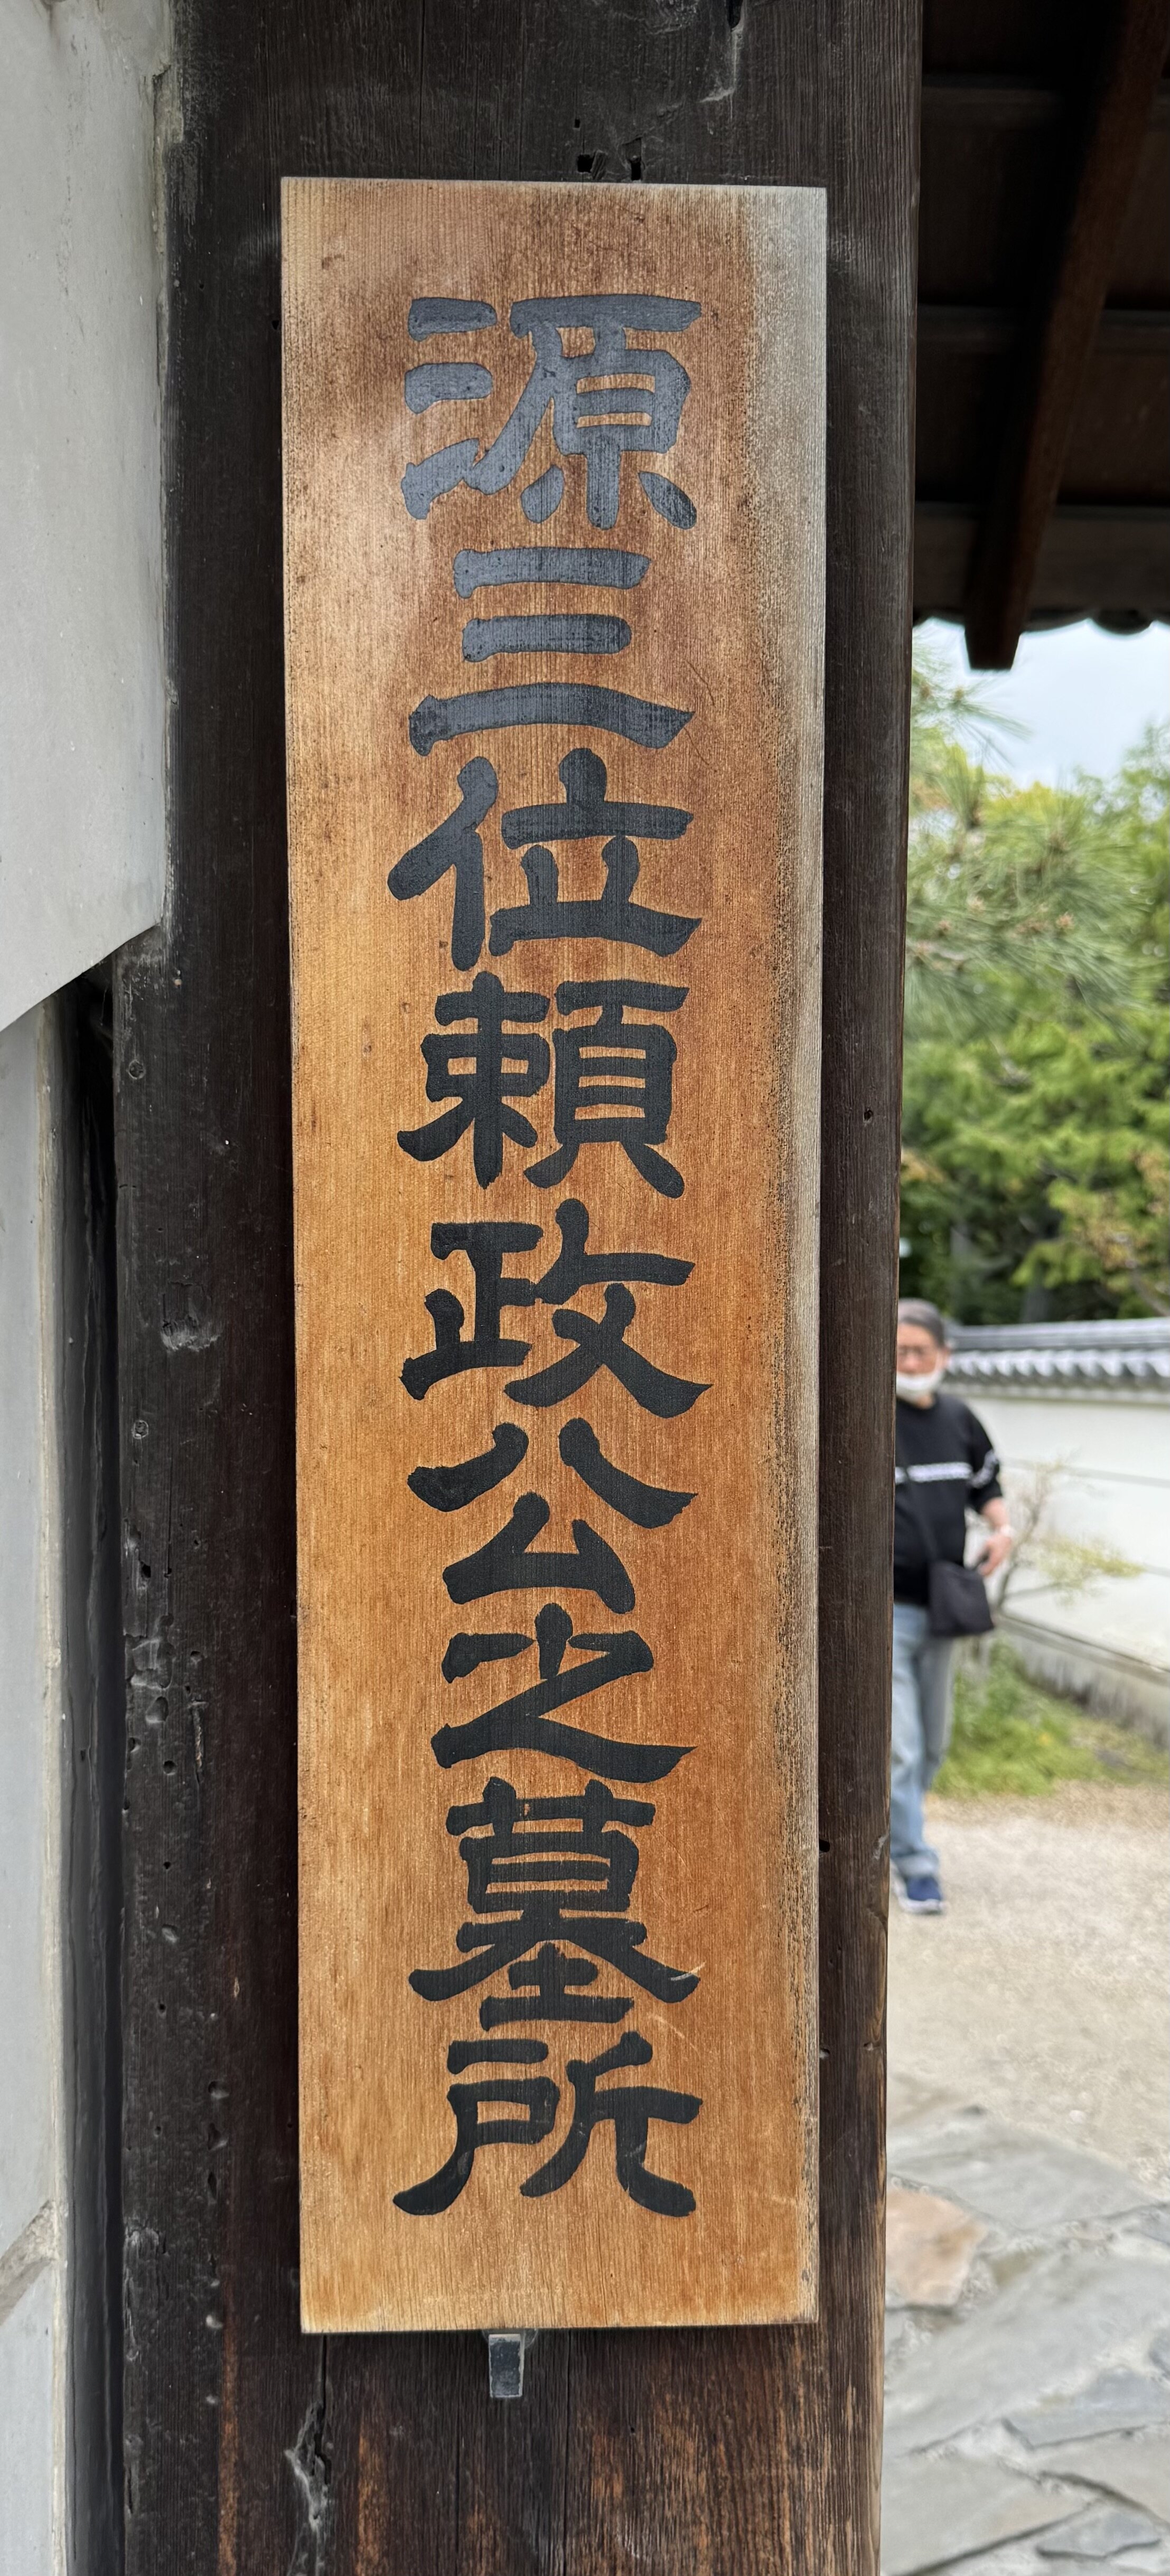 源三位頼政公之墓所